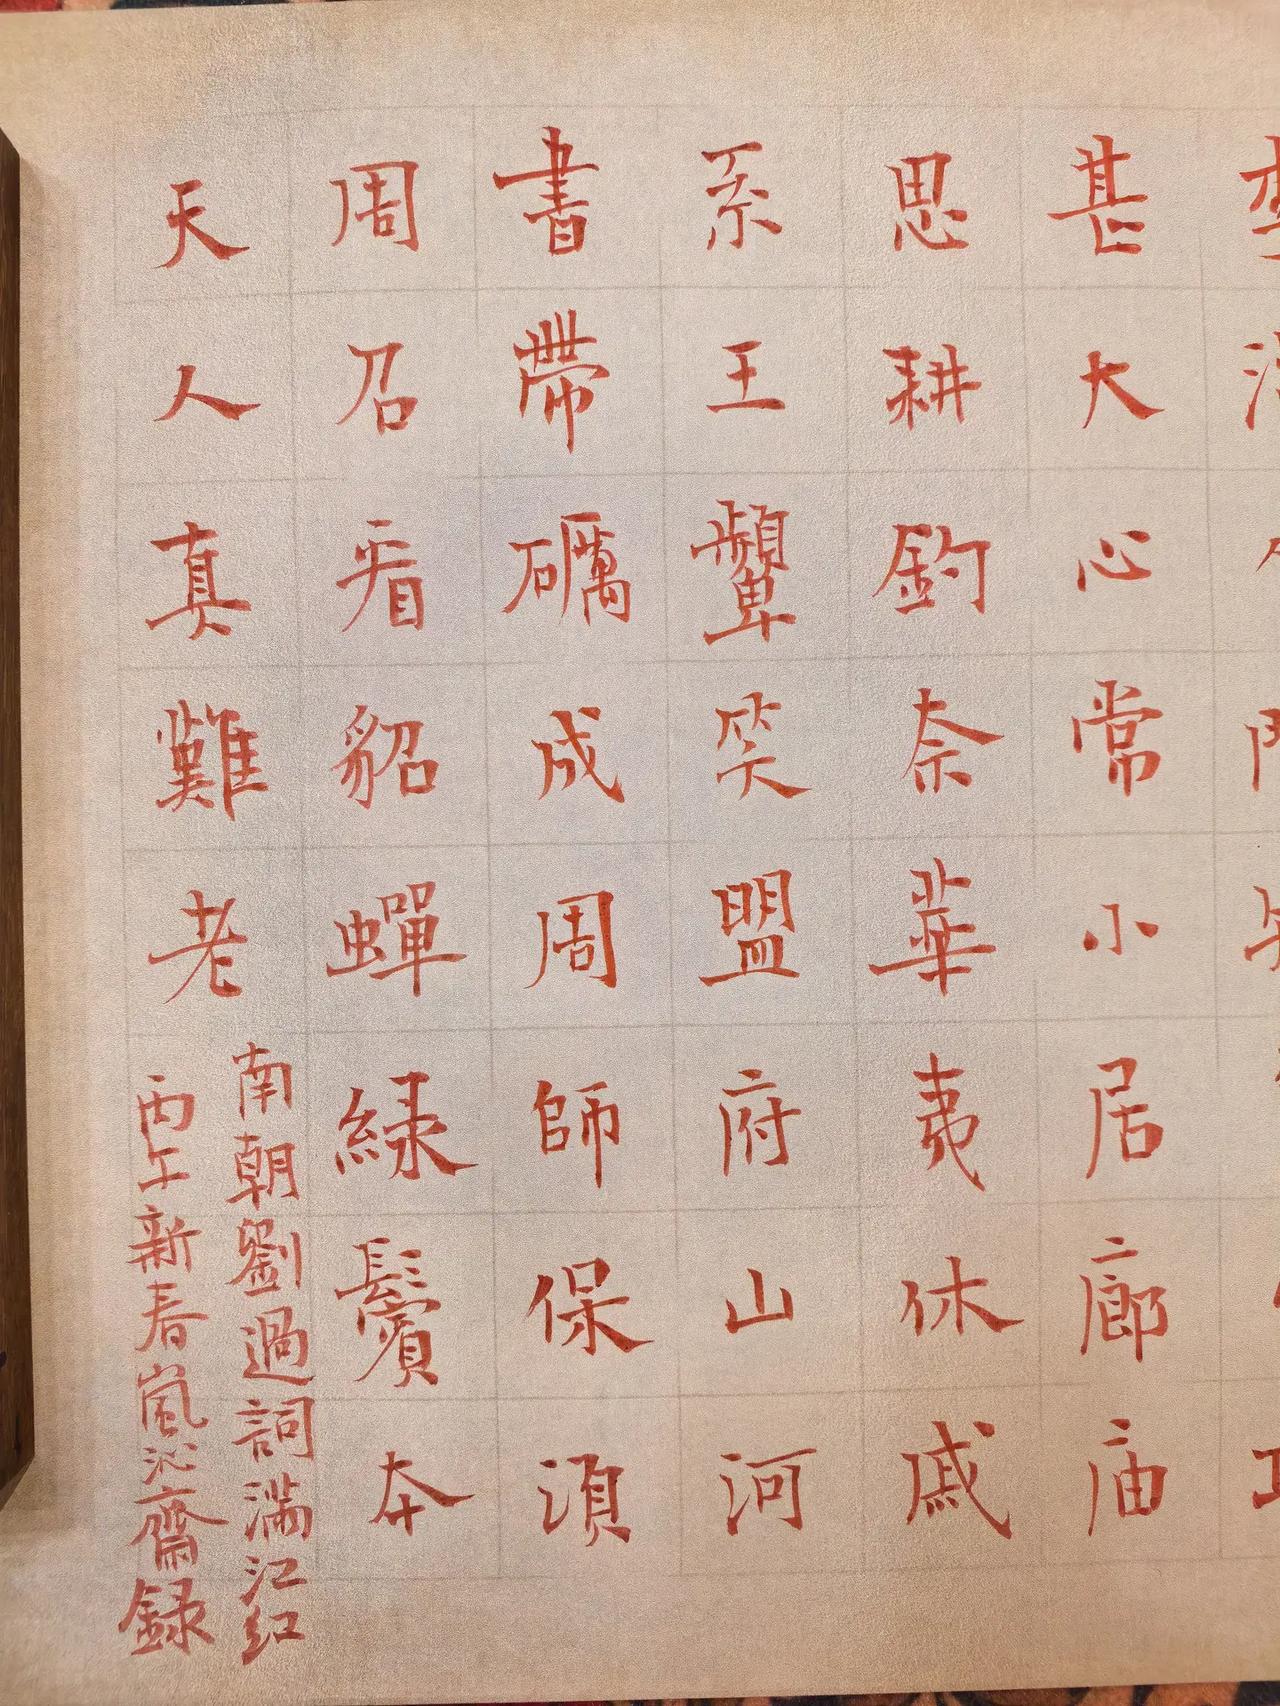 甚大心常小居廊庙
思耕钓奈華夷休戚
系王顰笑盟府山河
書帶礪成周師保須
周召看貂蟬綠鬢本
天人真難老
南朝劉過詞滿江紅
丙午新春嵐沁齋録